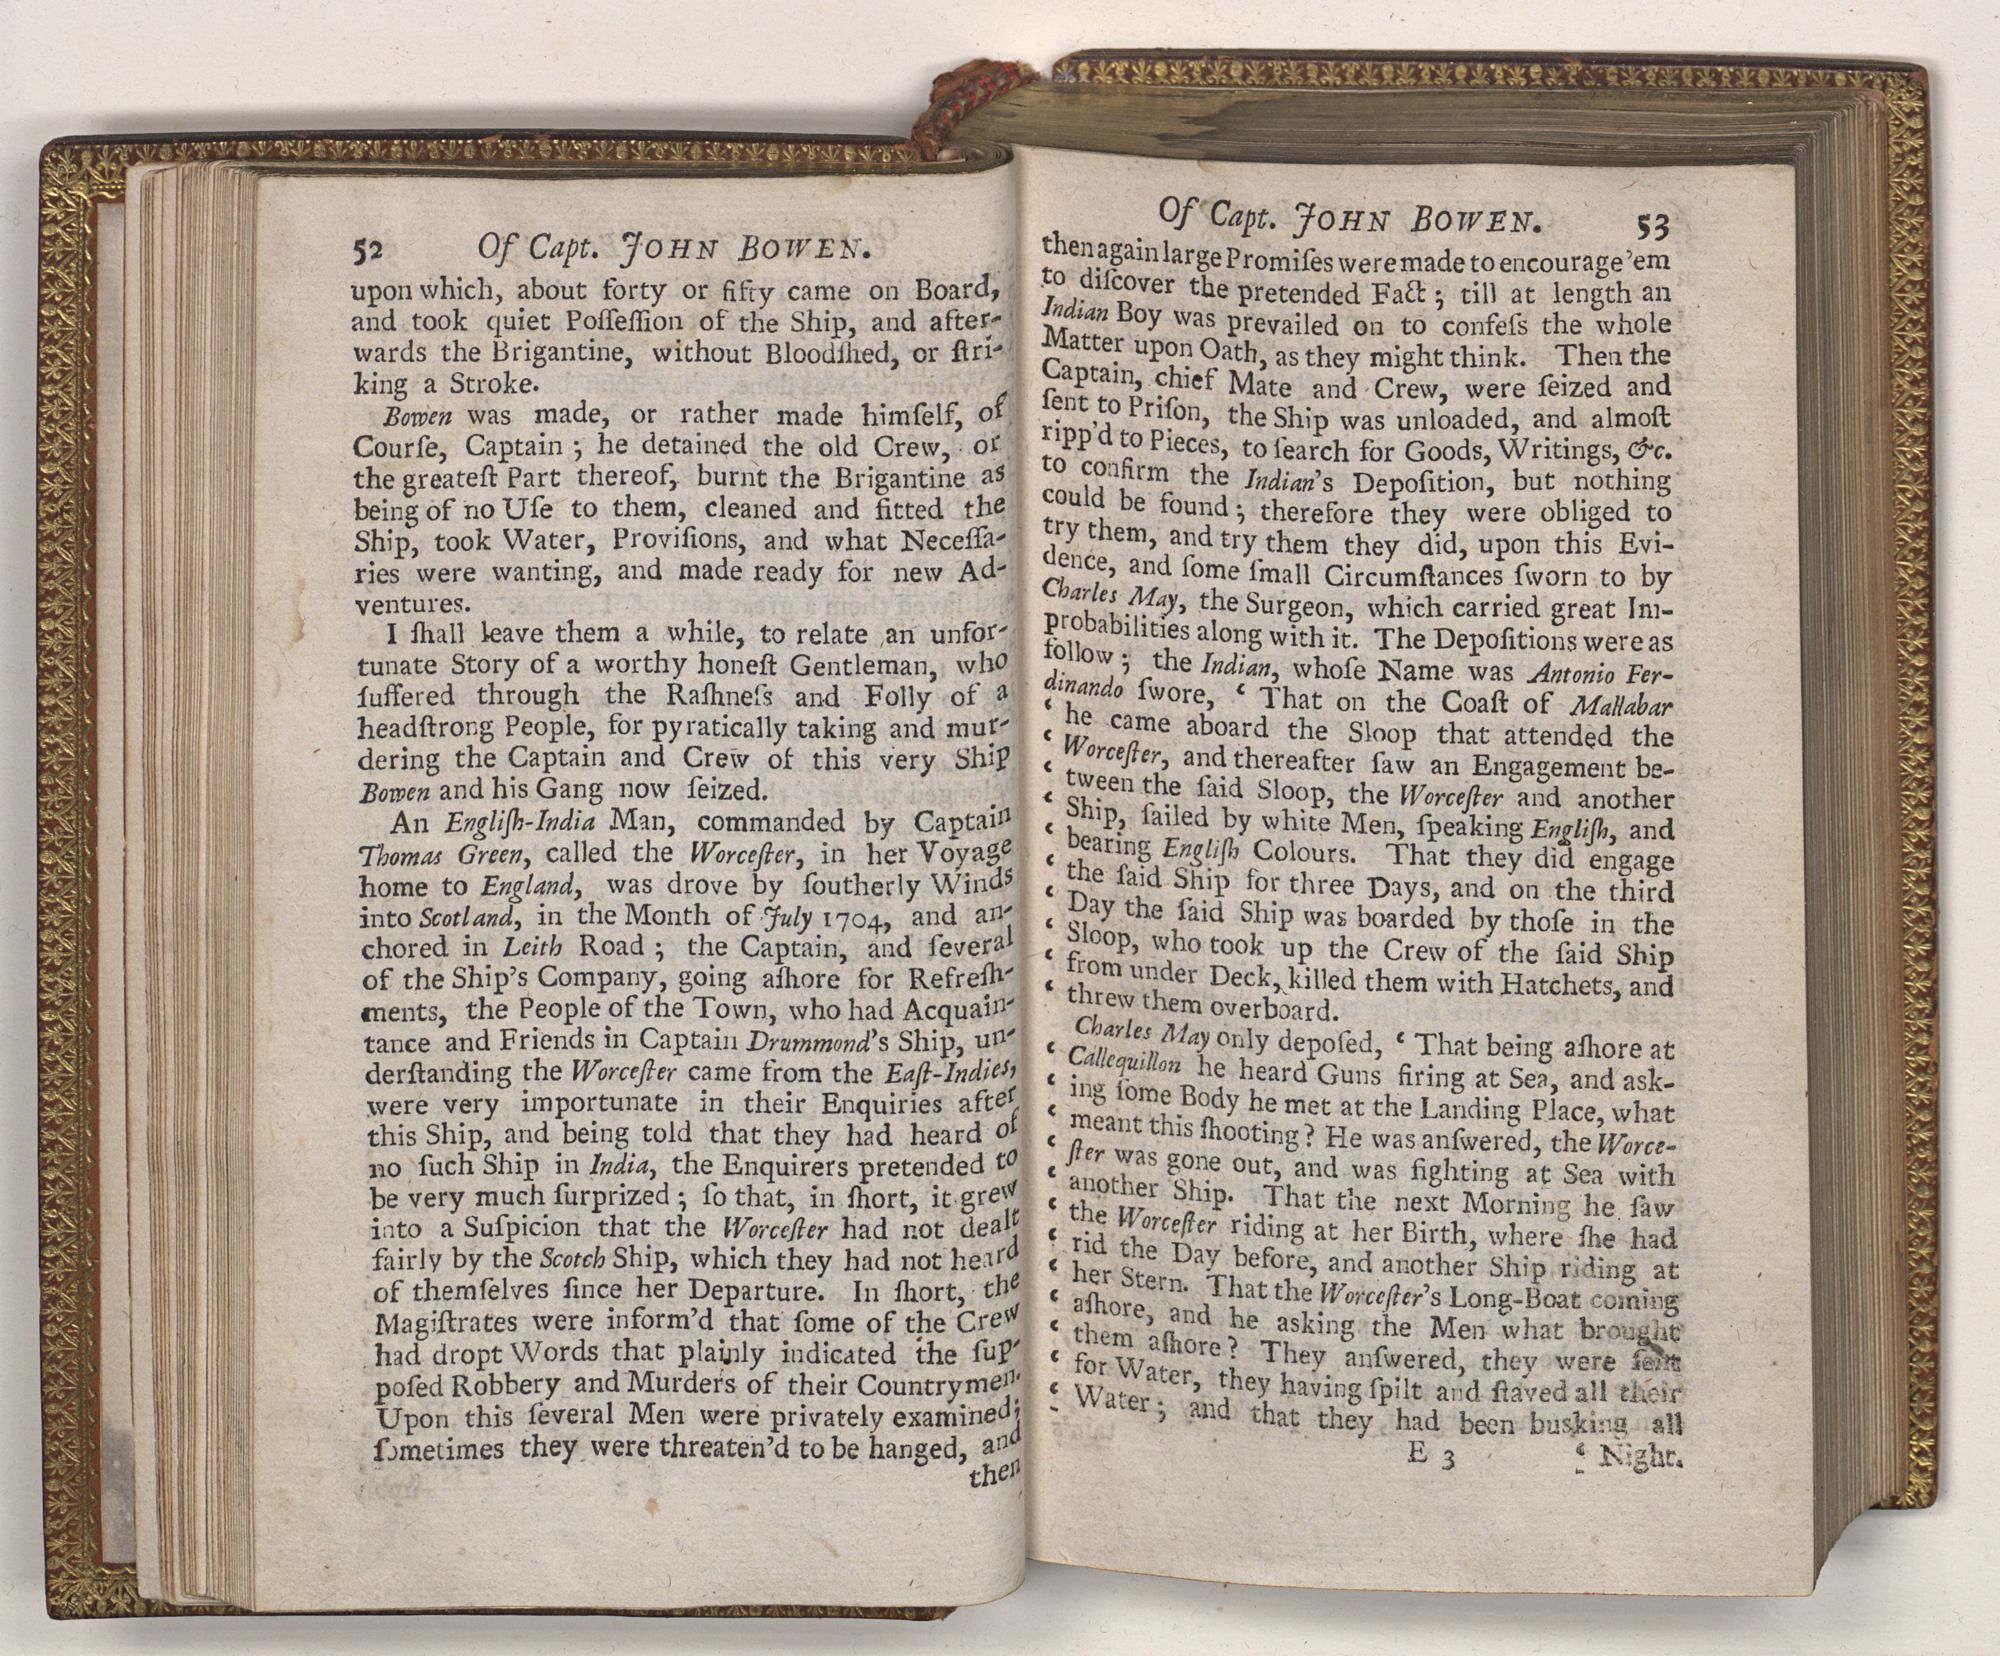 52 Of Capt. JOHN BOWEN.
upon which, about forty or fifty came on Board,
and took quiet Poſſeſſion of the Ship, and after-
wards the Brigantine, without Bloodſhed, or ſtri-
king a Stroke.
Bowen was made, or rather made himſelf, of
Courſe, Captain; he detained the old Crew, or
the greateſt Part thereof, burnt the Brigantine as
being of no Uſe to them, cleaned and fitted the
Ship, took Water, Proviſions, and what Neceſſa-
ries were wanting, and made ready for new Ad-
ventures.
I ſhall leave them a while, to relate an unfor-
tunate Story of a worthy honeſt Gentleman, who
ſuffered through the Raſhneſs and Folly of a
headſtrong People, for pyratically taking and mur-
dering the Captain and Crew of this very Ship
Bowen and his Gang now ſeized.
An Engliſh-India Man, commanded by Captain
Thomas Green, called the Worceſter, in her Voyage
home to England, was drove by ſoutherly Winds
into Scotland, in the Month of July 1704, and an-
chored in Leith Road; the Captain, and ſeveral
of the Ship's Company, going aſhore for Refreſh-
ments, the People of the Town, who had Acquain-
tance and Friends in Captain Drummond's Ship, un-
derſtanding the Worceſter came from the Eaſt-Indies,
were very importunate in their Enquiries after
this Ship, and being told that they had heard of
no ſuch Ship in India, the Enquirers pretended to
be very much ſurprized; ſo that, in ſhort, it grew
into a Suſpicion that the Worceſter had not dealt
fairly by the Scotch Ship, which they had not heard
of themſelves ſince her Departure. In ſhort, the
Magiſtrates were inform'd that ſome of the Crew
had dropt Words that plainly indicated the ſup-
poſed Robbery and Murders of their Countrymen.
Upon this ſeveral Men were privately examined;
ſometimes they were threaten'd to be hanged, and
then
Of Capt. JOHN BOWEN. 53
then again large Promiſes were made to encourage 'em
to diſcover the pretended Fact; till at length an
Indian Boy was prevailed on to confeſs the whole
Matter upon Oath, as they might think. Then the
Captain, chief Mate and Crew, were ſeized and
ſent to Priſon, the Ship was unloaded, and almoſt
ripp'd to Pieces, to ſearch for Goods, Writings, &c.
to confirm the Indian's Depoſition, but nothing
could be found; therefore they were obliged to
try them, and try them they did, upon this Evi-
dence, and ſome ſmall Circumſtances ſworn to by
Charles May, the Surgeon, which carried great Im-
probabilities along with it. The Depoſitions were as
follow; the Indian, whoſe Name was Antonio Fer-
dinando ſwore, ‘ That on the Coaſt of Mallabar
‘ he came aboard the Sloop that attended the
‘ Worceſter, and thereafter ſaw an Engagement be-
‘ tween the ſaid Sloop, the Worceſter and another
‘ Ship, ſailed by white Men, ſpeaking Engliſh, and
‘ bearing Engliſh Colours. That they did engage
‘ the ſaid Ship for three Days, and on the third
‘ Day the ſaid Ship was boarded by thoſe in the
‘ Sloop, who took up the Crew of the ſaid Ship
‘ from under Deck, killed them with Hatchets, and
‘ threw them overboard.
Charles May only depoſed, ‘ That being aſhore at
‘ Callequillon he heard Guns firing at Sea, and ask-
‘ ing ſome Body he met at the Landing Place, what
‘ meant this ſhooting? He was anſwered, the Worce-
‘ ſter was gone out, and was fighting at Sea with
‘ another Ship. That the next Morning he ſaw
‘ the Worceſter riding at her Birth, where ſhe had
‘ rid the Day before, and another Ship riding at
‘ her Stern. That the Worceſter's Long-Boat coming
‘ aſhore, and he asking the Men what brought
‘ them aſhore? They anſwered, they were ſent
‘ for Water, they having ſpilt and ſtaved all their
‘ Water; and that they had been busking all
E 3 ‘ Night.